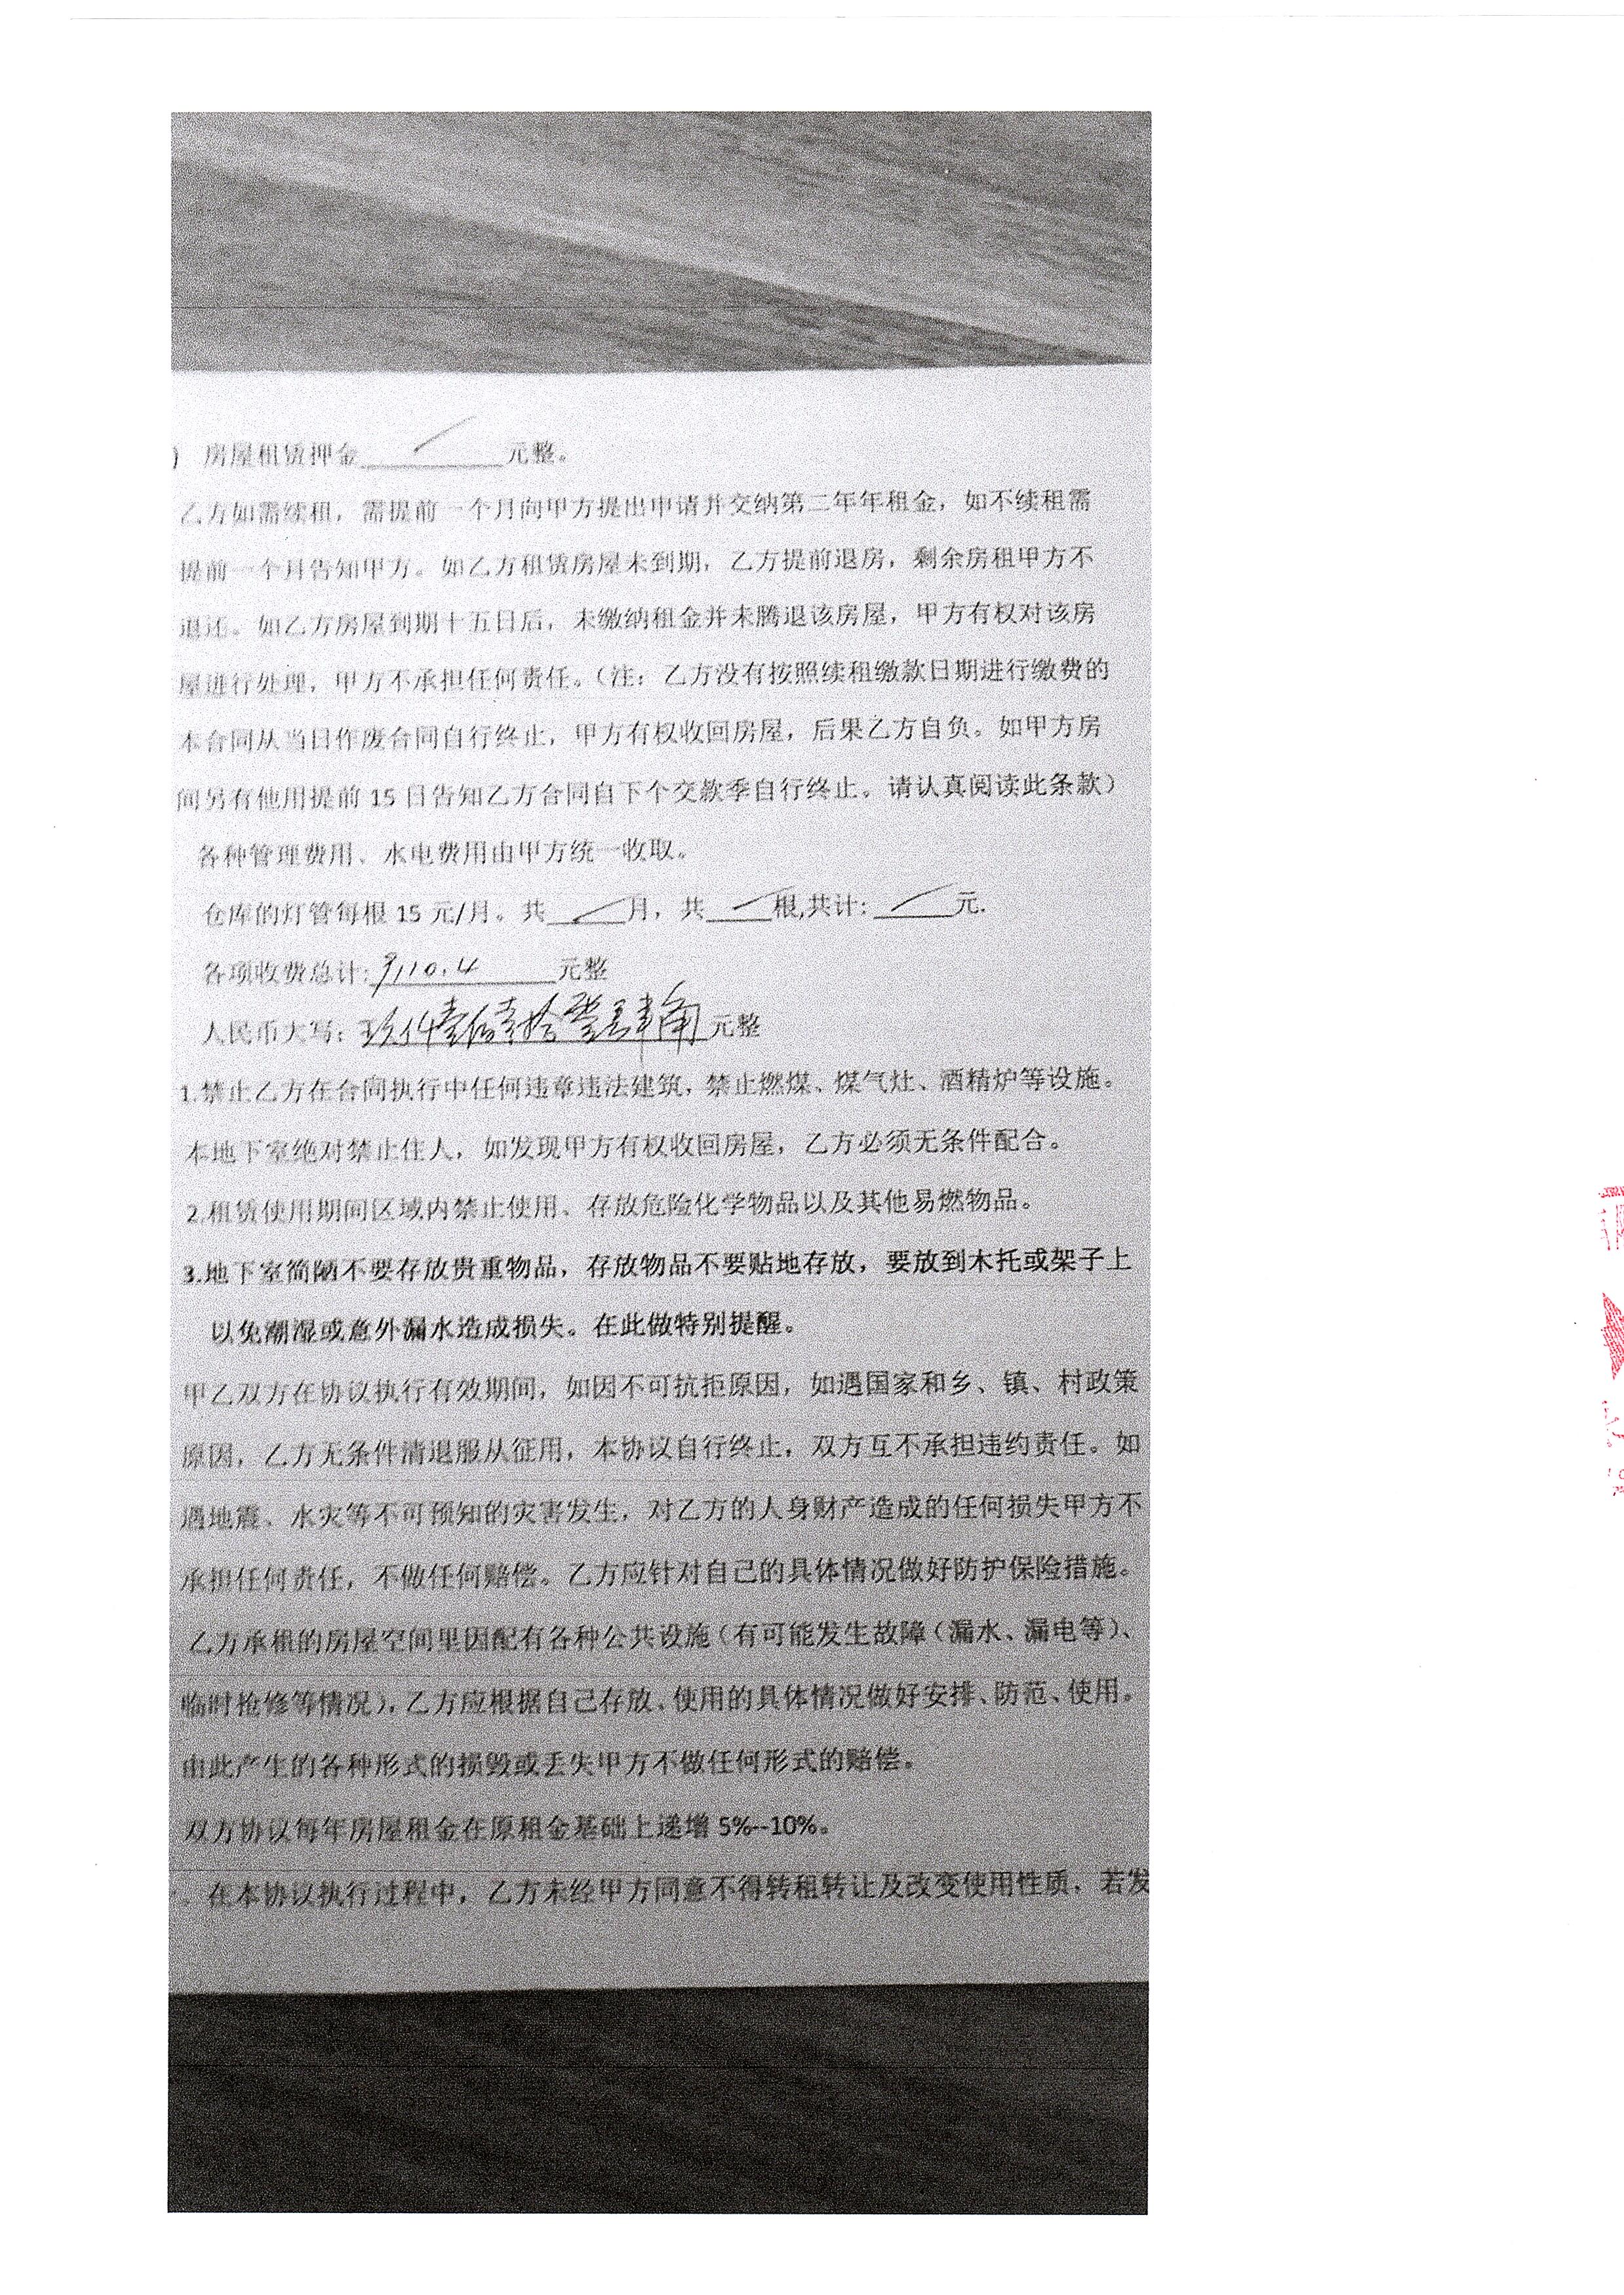 ) 房屋租赁押金 / 元整。
乙方如需续租，需提前一个月向甲方提出申请并交纳第二年年租金，如不续租需
提前一个月告知甲方。如乙方租赁房屋未到期，乙方提前退房，剩余房租甲方不
退还。如乙方房屋到期十五日后，未缴纳租金并未腾退该房屋，甲方有权对该房
屋进行处理，甲方不承担任何责任。（注：乙方没有按照续租缴款日期进行缴费的
本合同从当日作废合同自行终止，甲方有权收回房屋，后果乙方自负。如甲方房
间另有他用提前 15 日告知乙方合同自下个交款季自行终止。请认真阅读此条款）
各种管理费用、水电费用由甲方统一收取。
仓库的灯管每根 15 元/月。共 / 月，共 / 根,共计: / 元.
各项收费总计: 9110.4 元整
人民币大写: 玖仟壹佰壹拾零元肆角 元整
1.禁止乙方在合同执行中任何违章违法建筑，禁止燃煤、煤气灶、酒精炉等设施。
本地下室绝对禁止住人，如发现甲方有权收回房屋，乙方必须无条件配合。
2.租赁使用期间区域内禁止使用、存放危险化学物品以及其他易燃物品。
3.地下室简陋不要存放贵重物品，存放物品不要贴地存放，要放到木托或架子上
以免潮湿或意外漏水造成损失。在此做特别提醒。
甲乙双方在协议执行有效期间，如因不可抗拒原因，如遇国家和乡、镇、村政策
原因，乙方无条件清退服从征用，本协议自行终止，双方互不承担违约责任。如
遇地震、水灾等不可预知的灾害发生，对乙方的人身财产造成的任何损失甲方不
承担任何责任，不做任何赔偿。乙方应针对自己的具体情况做好防护保险措施。
乙方承租的房屋空间里因配有各种公共设施（有可能发生故障（漏水、漏电等）、
临时抢修等情况），乙方应根据自己存放、使用的具体情况做好安排、防范、使用。
由此产生的各种形式的损毁或丢失甲方不做任何形式的赔偿。
双方协议每年房屋租金在原租金基础上递增 5%--10%。
在本协议执行过程中，乙方未经甲方同意不得转租转让及改变使用性质，若发